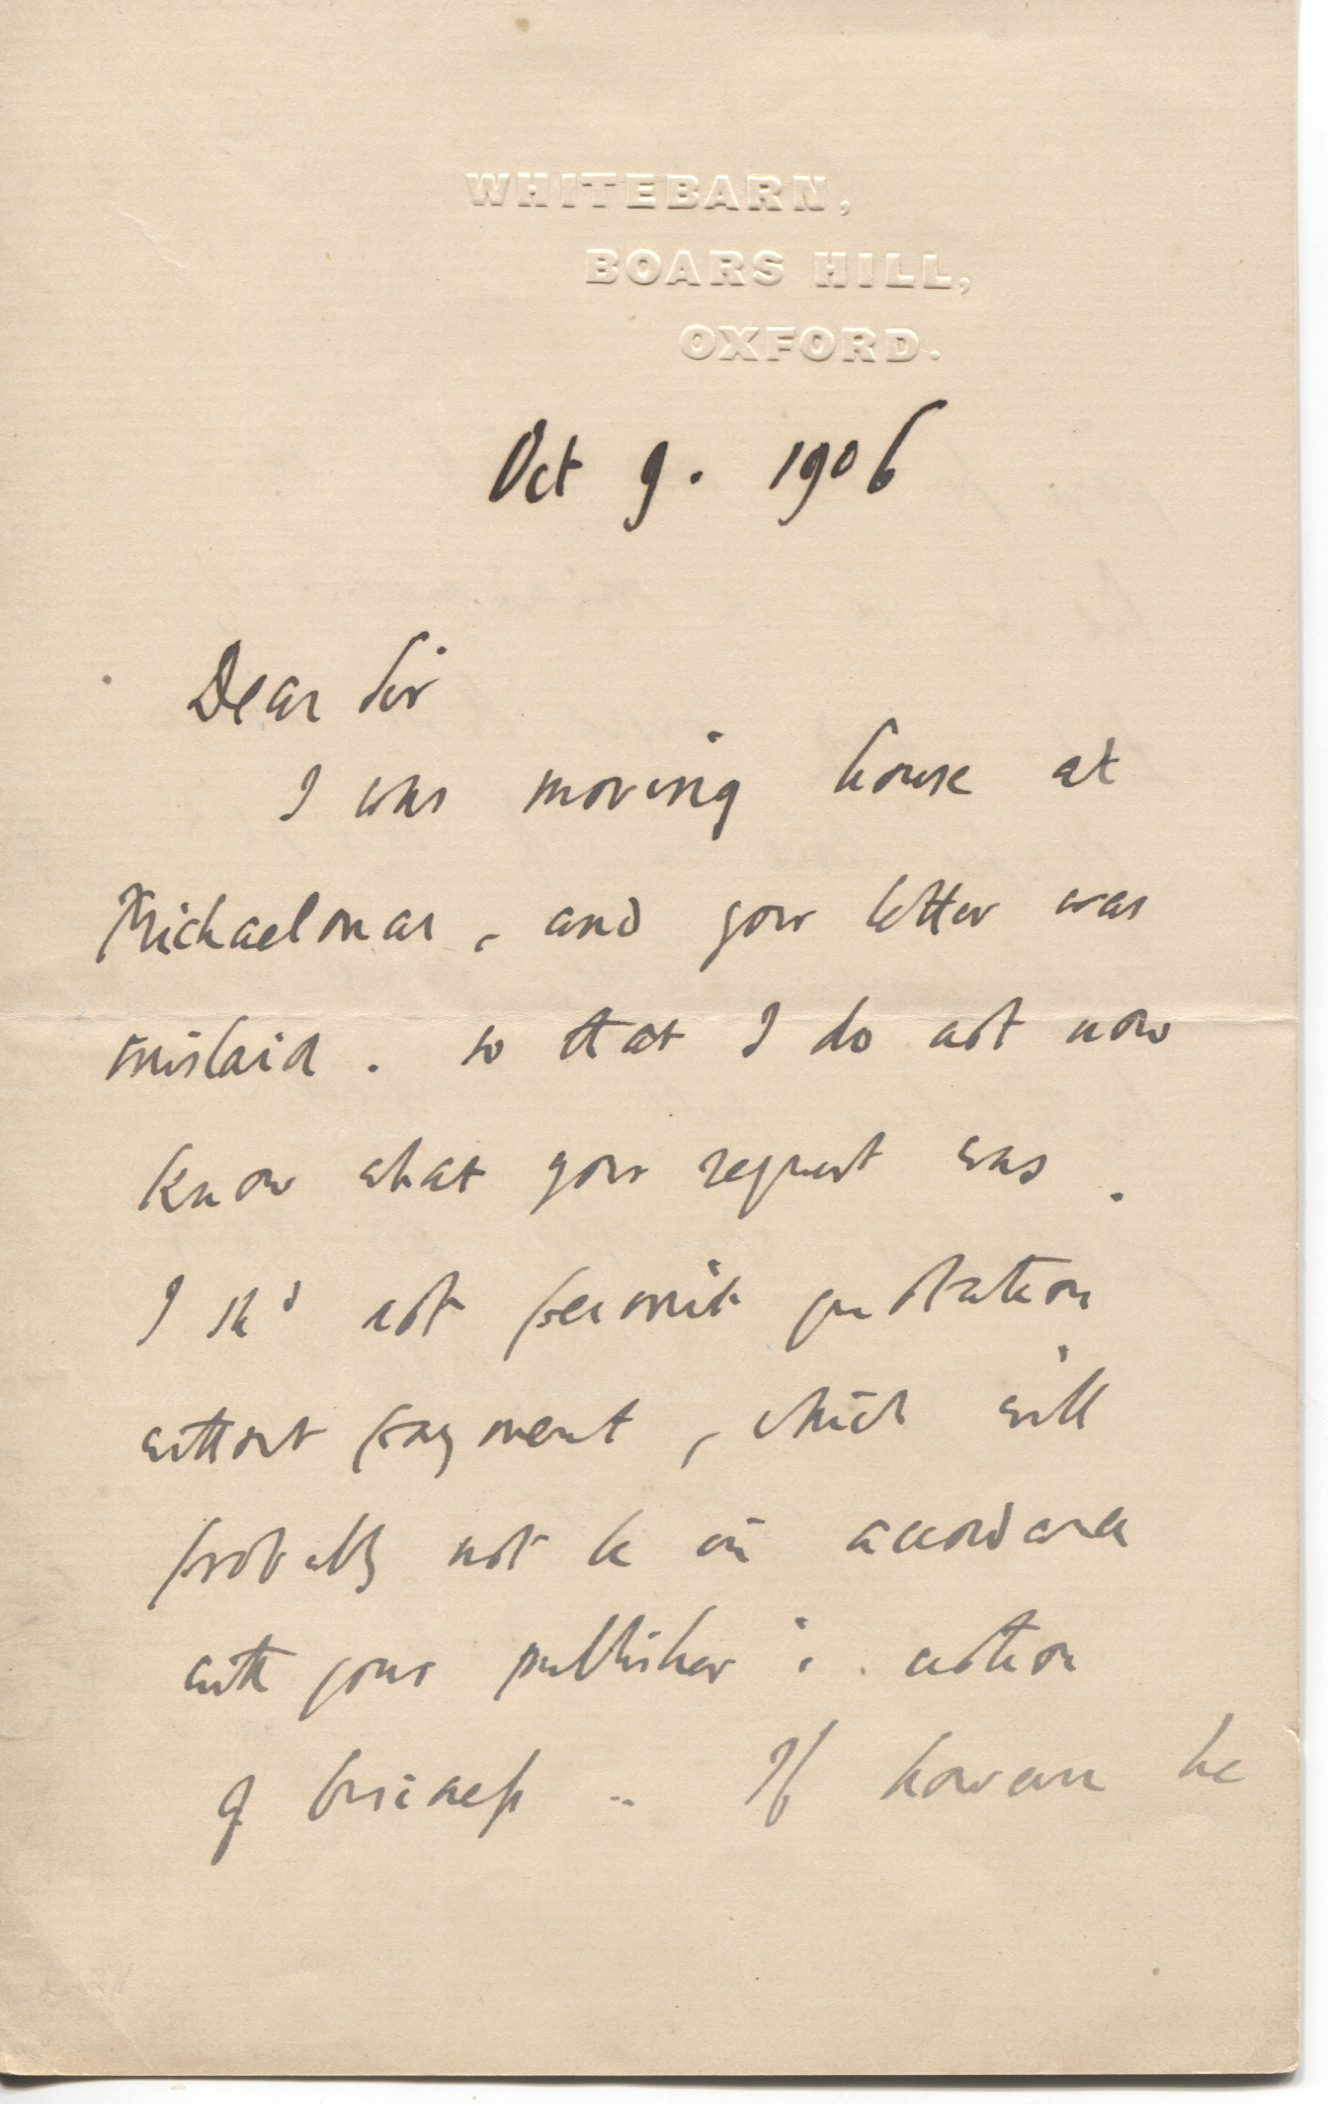 WHITEBARN,
BOARS HILL,
OXFORD.
Oct 9. 1906
Dear Sir
I was moving house at
Michaelmas, and your letter was
mislaid. so that I do not now
know what your request was.
I shd not permit quotation
without payment, which will
probably not be in accordance
with your publisher's notion
of business.. If however he